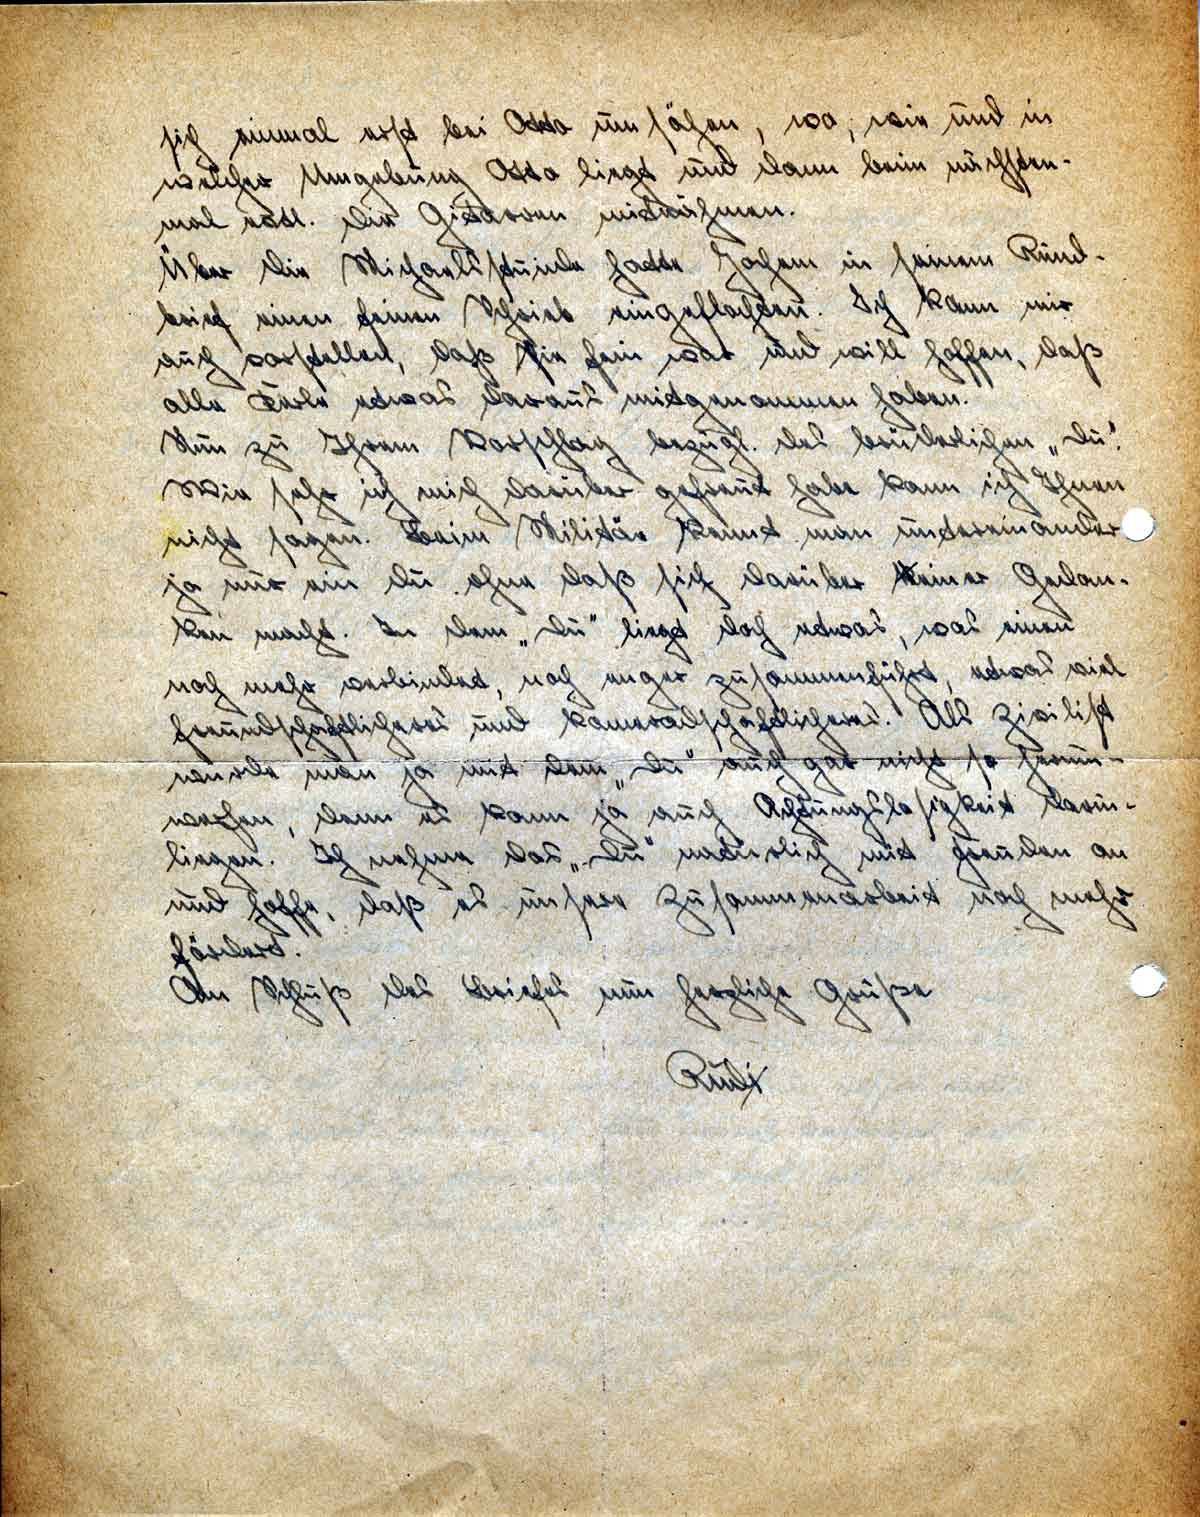 sich einmal erst bei Otto umsähen, wo, wie und in
welcher Umgebung Otto liegt und dann beim nächsten-
mal evtl. die Gitarren mitnähmen.
Über die Michaelsstunde hatte Jochem in seinem Rund-
brief einen feinen Schrieb eingeflochten. Ich kann mir
auch vorstellen, daß sie fein war und will hoffen, daß
alle Kerle etwas daraus mitgenommen haben.
Nun zu Ihrem Vorschlag bezügl. des brüderlichen „Du".
Wie sehr ich mich darüber gefreut habe kann ich Ihnen
nicht sagen. Beim Militär kennt man untereinander
ja nur ein Du ohne daß sich darüber einer Gedan-
ken macht. In dem „Du" liegt doch etwas, was einen
noch mehr verbindet, noch enger zusammenführt, etwas viel
freundschaftlicheres und kameradschaftlicheres. Als Zivilist
wurde man ja mit dem „Du" auch gar nicht so herum-
werfen, denn es kann ja auch Achtungslosigkeit darin-
liegen. Ich nehme das „Du" natürlich mit Freuden an
und hoffe, daß es unsere Zusammenarbeit noch mehr
fördert.
Am Schluß des Briefes nun herzliche Grüße
Rudi